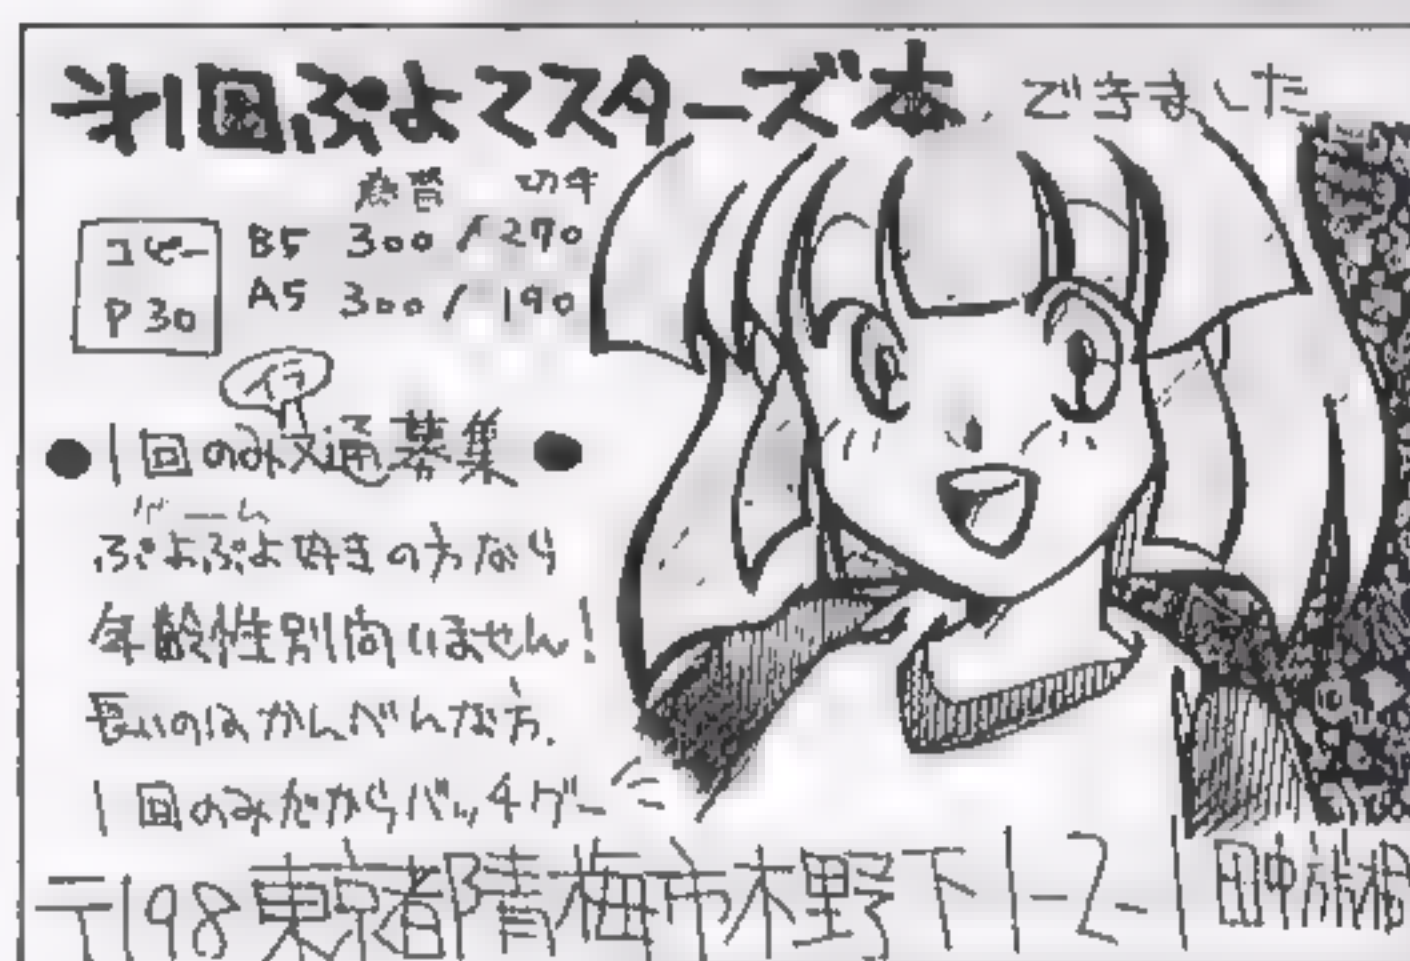 第1回ぷよマスターズ本、できました
為替 切手
コピー P30
B5 300/270
A5 300/190
イラ
●1回のみ文通募集●
ゲーム
ぷよぷよ好きの方なら
年齢性別問いません!
長いのはかんべんな方.
1回のみだからバッチグー
〒198東京都青梅市木野下1-2-1